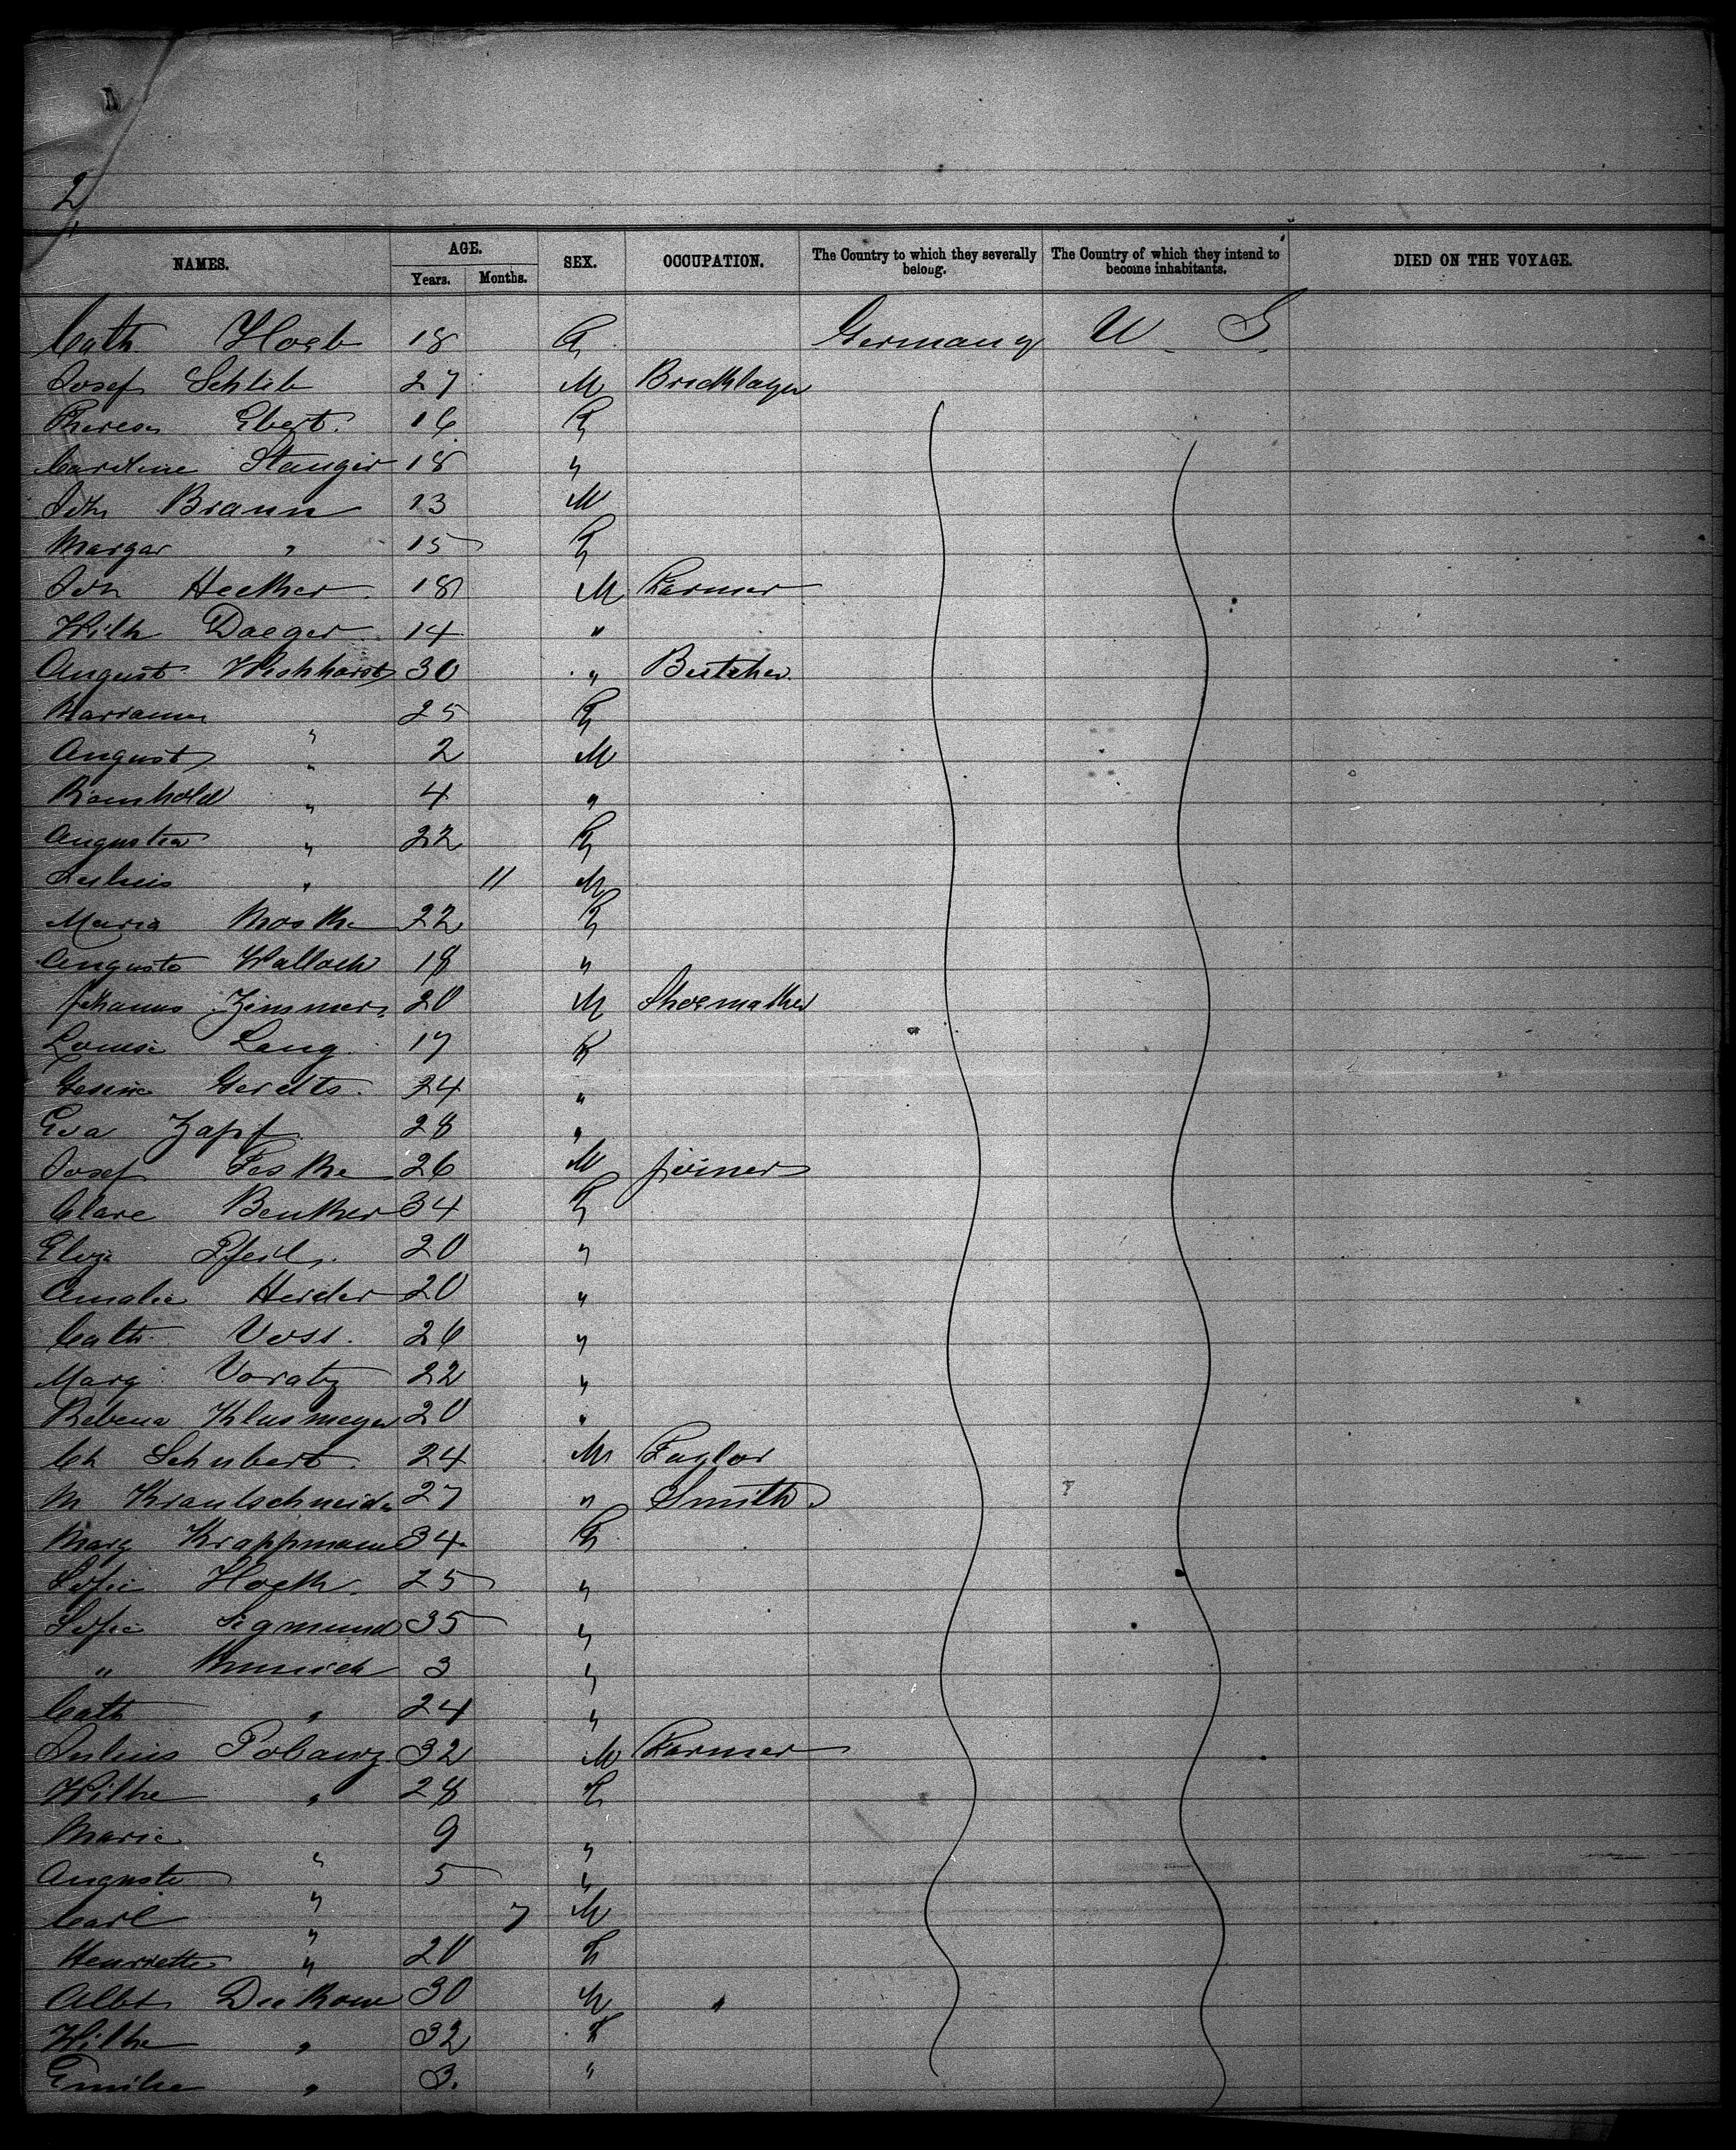 2
NAMES. AGE. SEX. OCCUPATION. The Country to which they severally belong. The Country of which they intend to become inhabitants. DIED ON THE VOYAGE.
Years. Months.
Cath. 18 F Germany U. S.
Josef Schlib 27 M Bricklayer
Theresa Ebert. 16 F
Caroline Stanger 18 "
Joh Braun 13 M
Margar " 15 F
Joh Hecker 18 M Farmer
Wilh Daeger 14 "
August 30 " Butcher
Marianna " 25 F
August " 2 M
" 4 "
Augusta " 22 F
Julius " 11 M
Maria Moske 22 F
Auguste Wallach 18 "
Johannes Zimmer 20 M Shoemaker
Louise Lang 17 F
Gesine Gerdts. 24 "
Eva Zapf 28 "
Josef Feske 26 M joiner
Clare Benker 34 F
Eliza Pfeil 20 "
Amalie Herder 20 "
Cath. Voss. 26 "
Marg. Voratz 22 "
Klusmeyer 20 "
Ch Schubert 24 M Taylor
M 27 " Smith
Marg Krappmann 34 F
Sofie 25 "
Sofie Sigmund 35 "
" 3 "
Cath " 24 "
Julius 32 M Farmer
Wilhe " 28 F
Marie " 9 "
Auguste " 5 "
Carl " 7 M
Henriette " 20 F
Albt 30 M "
Wilhe " 32 F
Emilie " 3. "